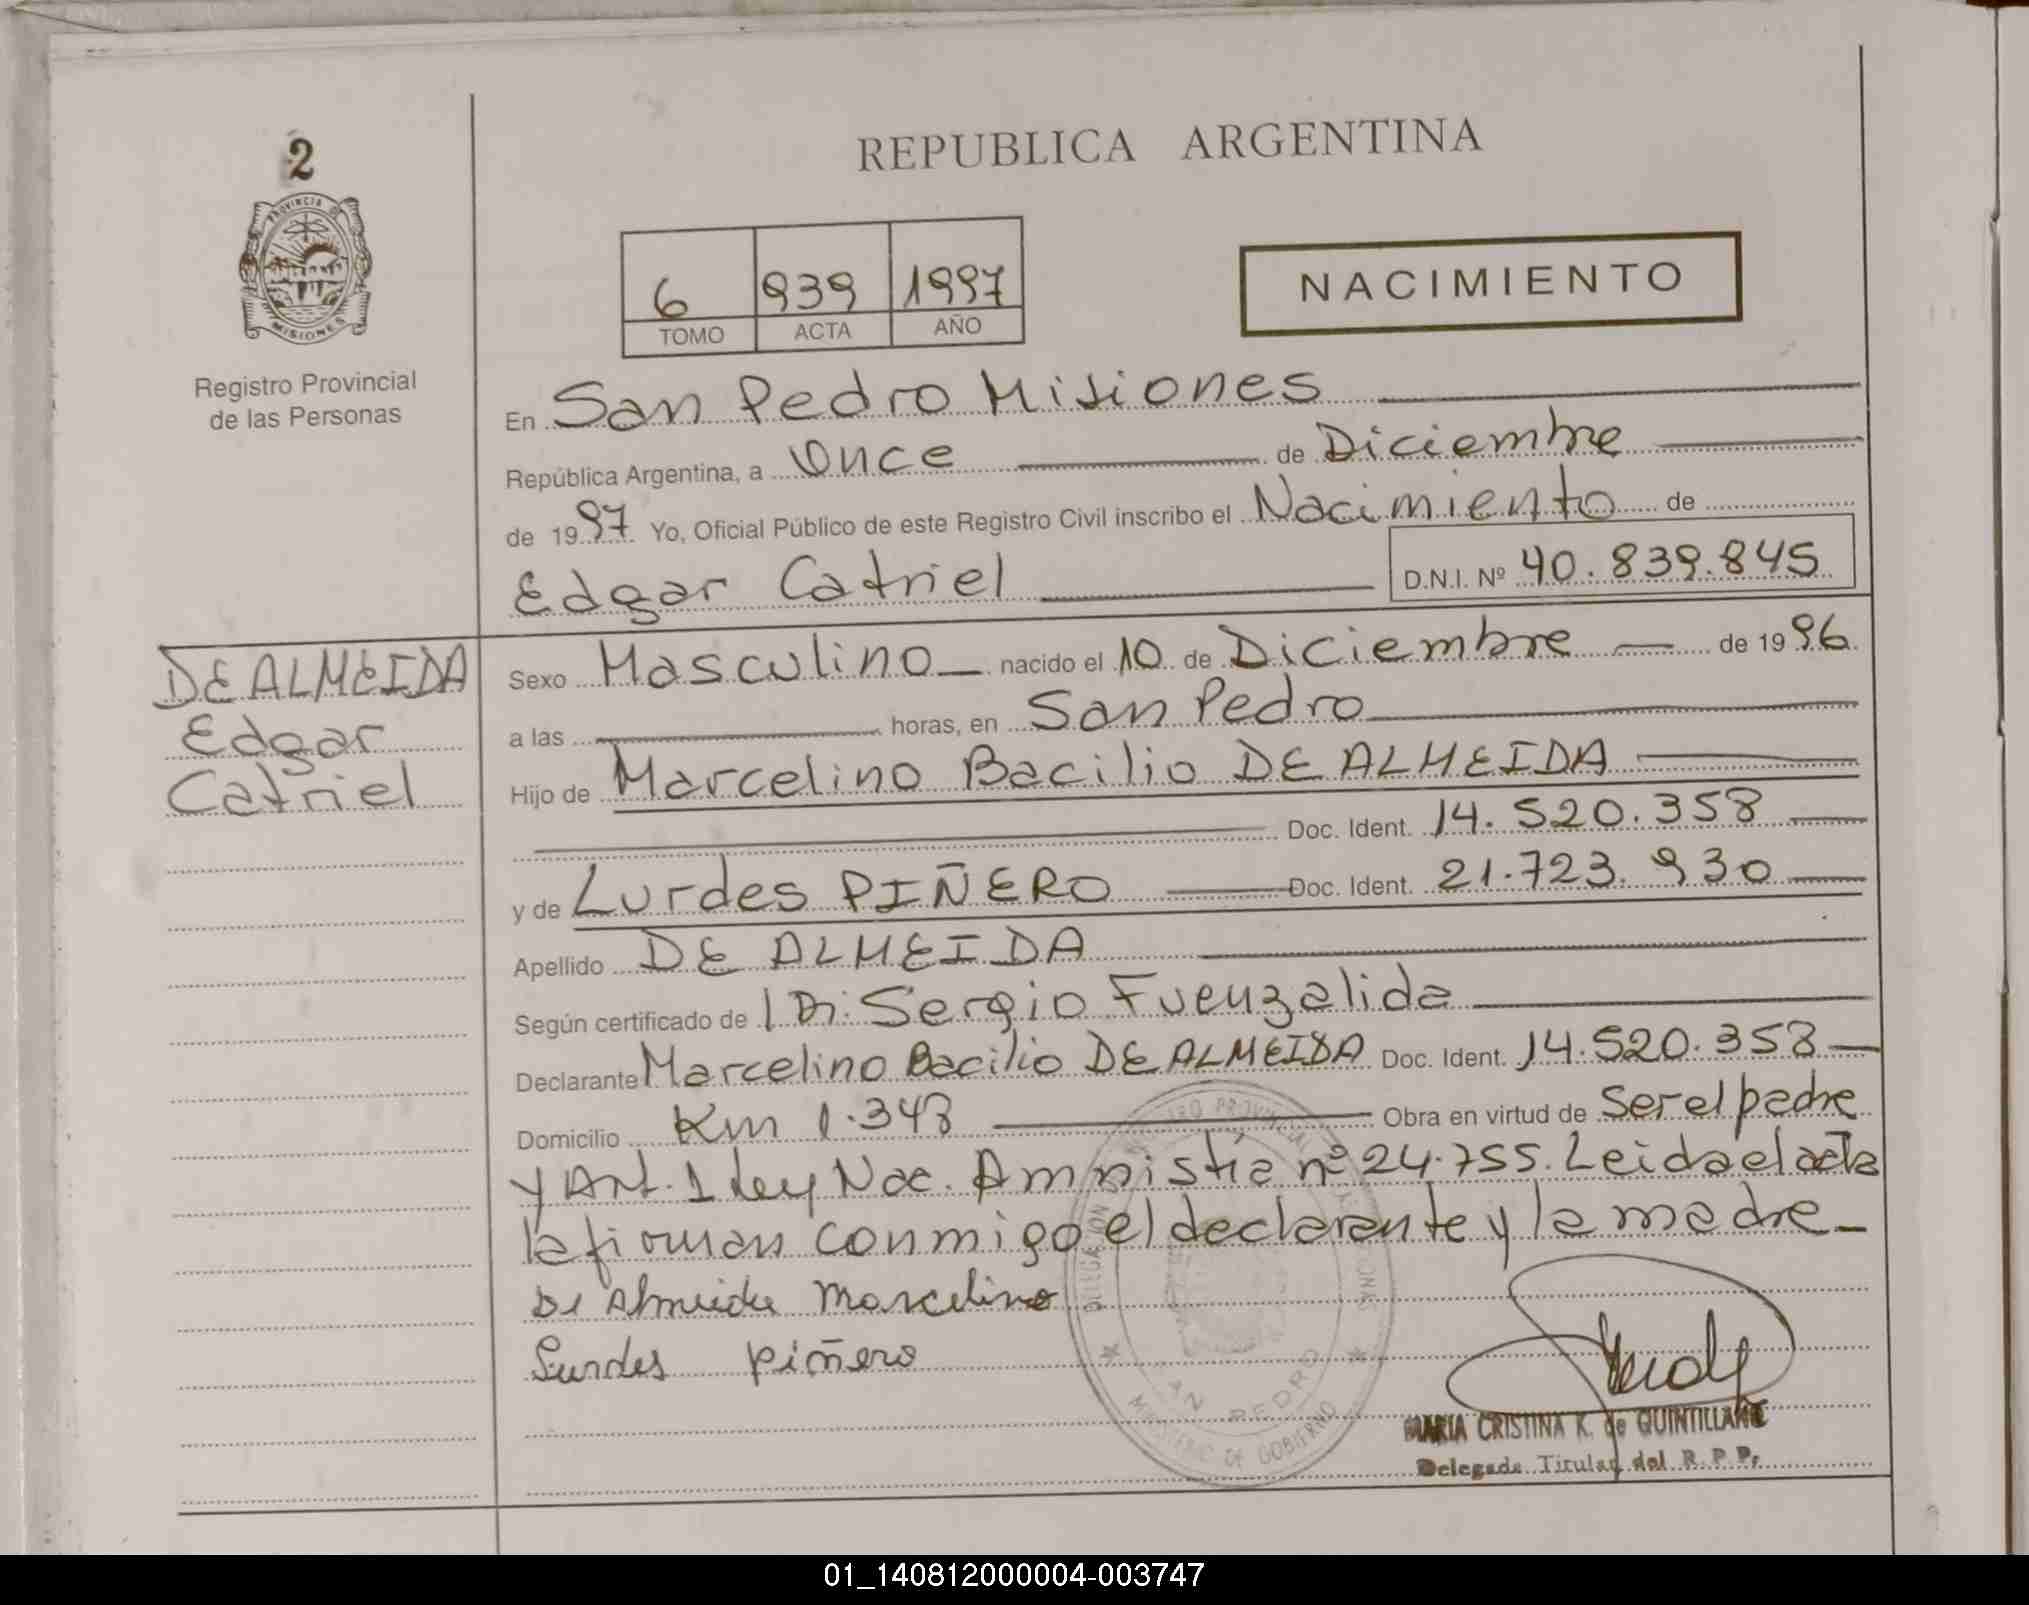 2
PROVINCIA DE
MISIONES
Registro Provincial
de las Personas
REPUBLICA ARGENTINA
6 939 1997
TOMO ACTA AÑO
NACIMIENTO
En San Pedro Misiones
República Argentina, a Once de Diciembre
de 1997 Yo, Oficial Público de este Registro Civil inscribo el Nacimiento de
Edgar Catriel D.N.I. Nº 40.839.845
DE ALMEIDA
Edgar
Catriel
Sexo Masculino nacido el 10 de Diciembre de 1996
a las horas, en San Pedro
Hijo de Marcelino Bacilio DE ALMEIDA
Doc. Ident. 14.520.358
y de Lurdes PIÑERO Doc. Ident. 21.723.930
Apellido DE ALMEIDA
Según certificado de Dr. Sergio Fuenzalida
Declarante Marcelino Bacilio DE ALMEIDA Doc. Ident. 14.520.358
Domicilio Km 1.343 Obra en virtud de Ser el padre
y Art. 1 Ley Nac. Amnistía nº 24.755. Leida el acta
la firman conmigo el declarante y la madre
De Almeida Marcelino
Lurdes Piñero
SAN PEDRO
MINISTERIO DE GOBIERNO
MARIA CRISTINA K. de QUINTILLANE
Delegada Titular del R. P. P.
01_140812000004-003747